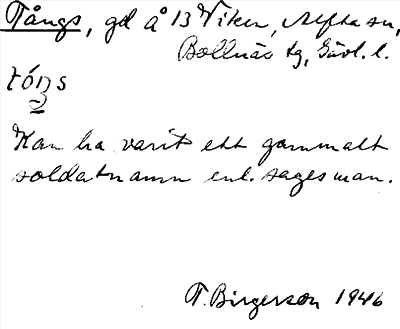 Tångs, gd å 13 Viken, Alfta sn,
Bollnäs tg, Gävl. l.
tóŋs
Kan ha varit ett gammalt
soldatnamn enl. sagesman.
T. Birgerson 1946